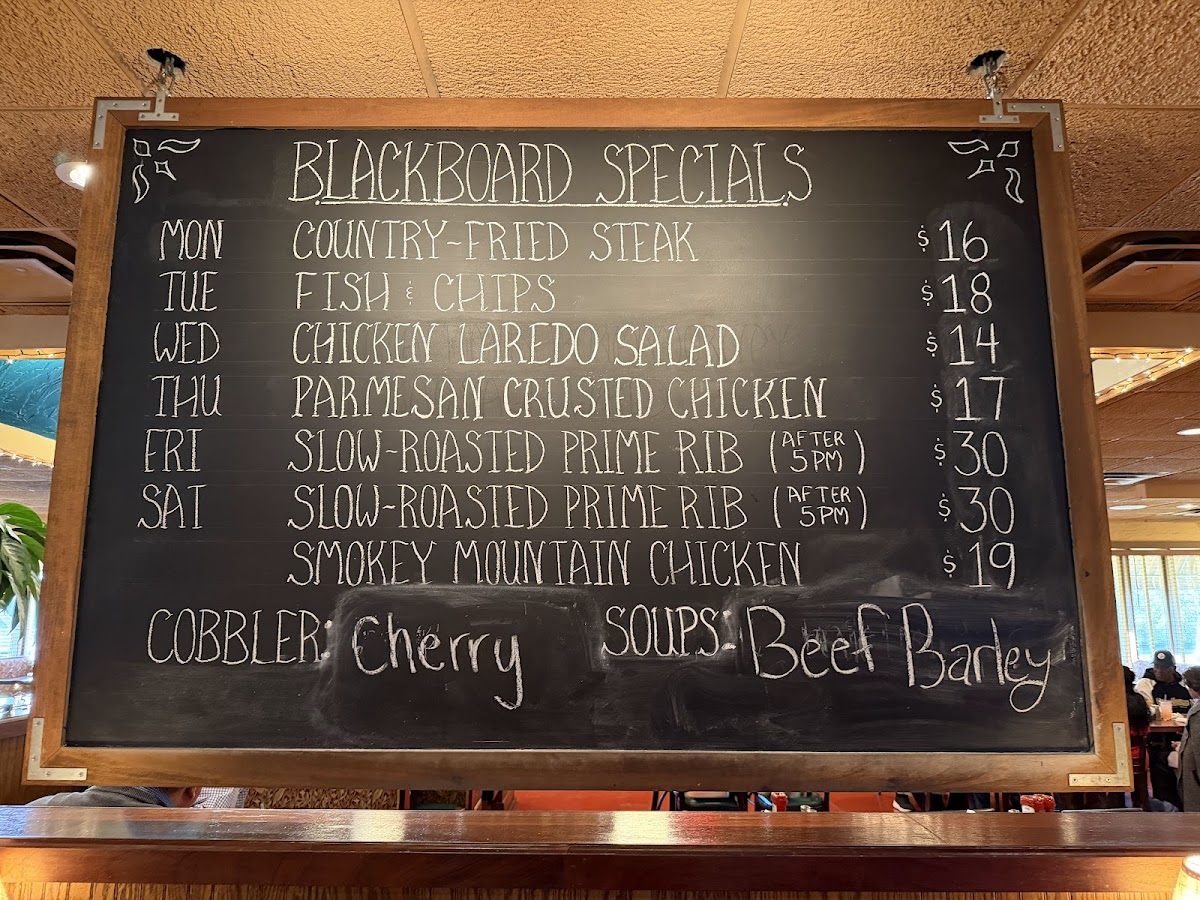 BLACKBOARD SPECIALS
MON COUNTRY-FRIED STEAK $16
TUE FISH & CHIPS $18
WED CHICKEN LAREDO SALAD $14
THU PARMESAN CRUSTED CHICKEN $17
FRI SLOW-ROASTED PRIME RIB (AFTER 5PM) $30
SAT SLOW-ROASTED PRIME RIB (AFTER 5PM) $30
SMOKEY MOUNTAIN CHICKEN $19
COBBLER: Cherry SOUPS: Beef Barley